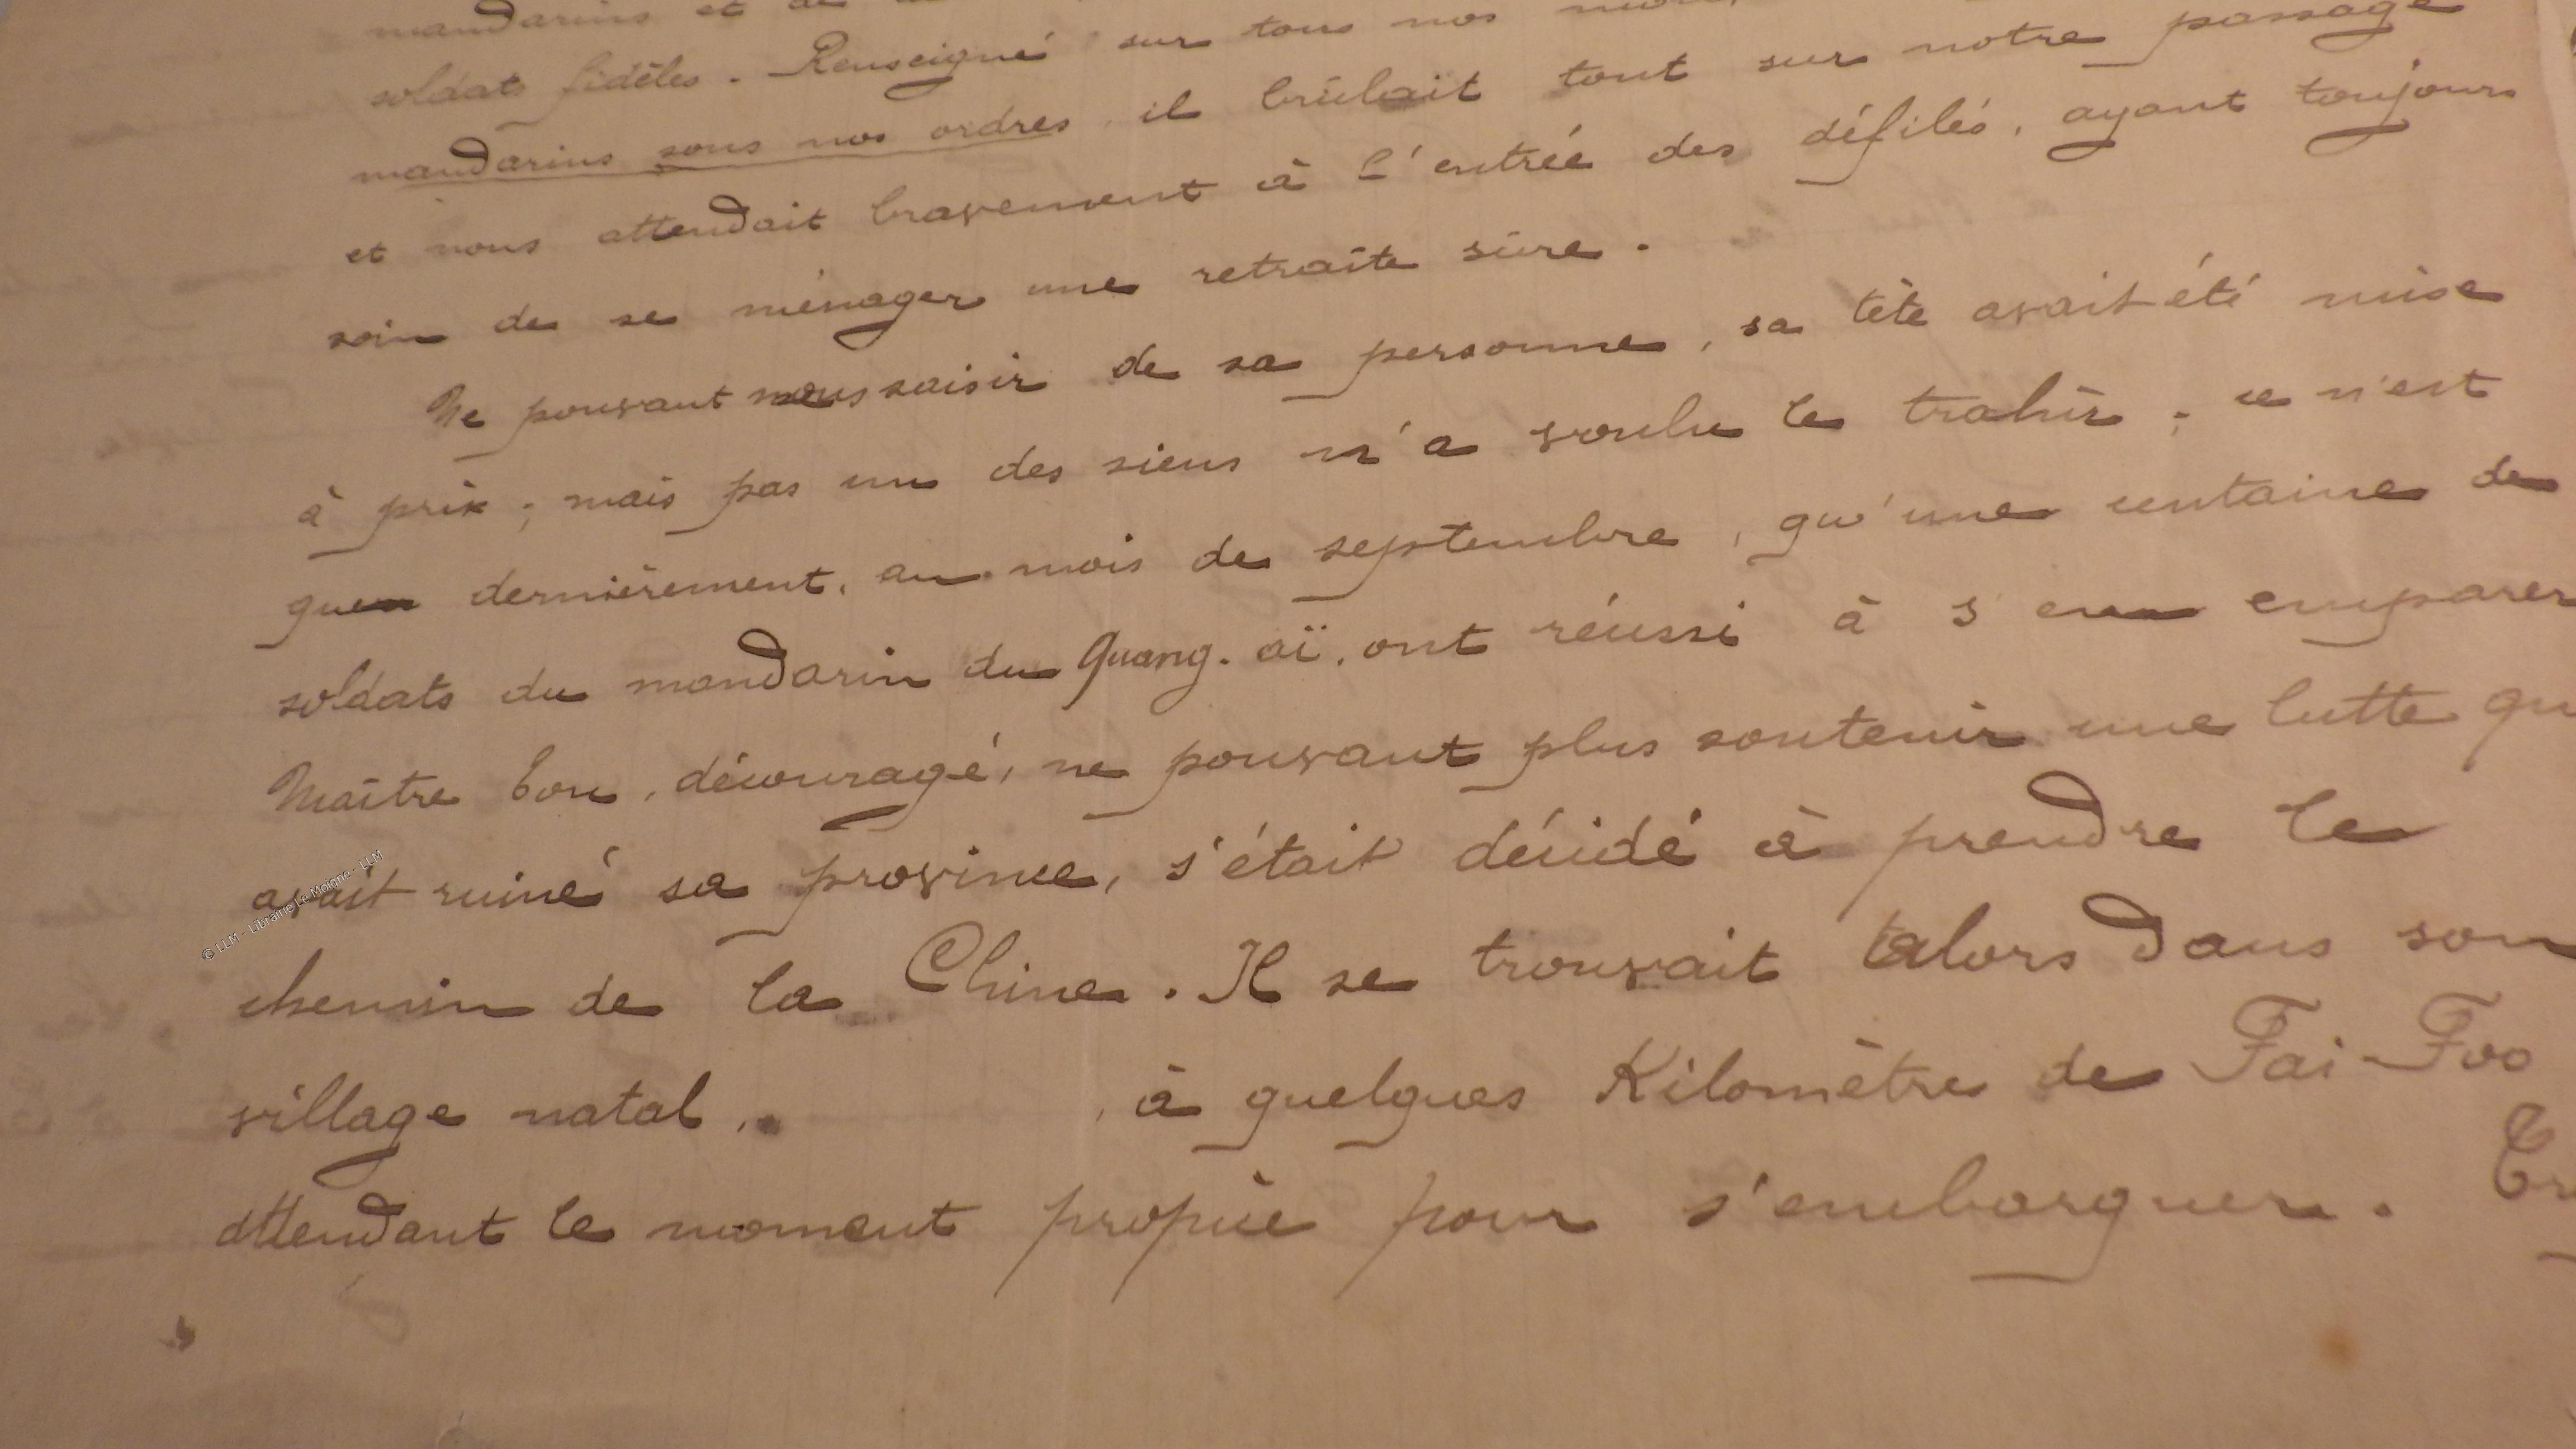 mandarins et de
soldats fidèles. Renseigné sur tous nos
mandarins sous nos ordres, il brûlait tout sur notre passage
et nous attendait bravement à l'entrée des défilés, ayant toujours
soin de se ménager une retraite sûre.
Ne pouvant nous saisir de sa personne, sa tête avait été mise
à prix ; mais pas un des siens n'a voulu le trahir ; ce n'est
que dernièrement, au mois de septembre, qu'une centaine de
soldats du mandarin du Quang. aï, ont réussi à s'en emparer
Maître bon, découragé, ne pouvant plus soutenir une lutte qu
avait ruiné sa province, s'était décidé à prendre le
chemin de la Chine. Il se trouvait alors dans son
village natal, , à quelques Kilomètres de Fai-Foo
attendant le moment propice pour s'embarquer.
© LLM - Librairie Le Moigne - LLM